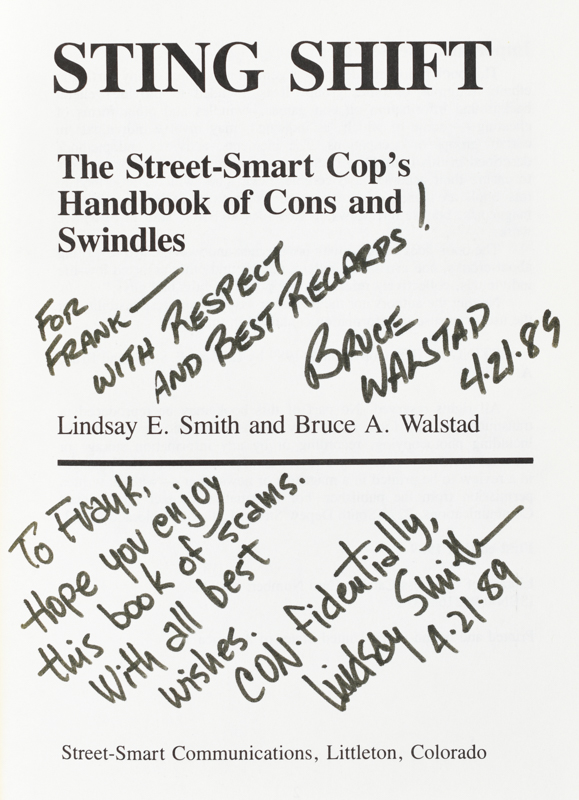 STING SHIFT
The Street-Smart Cop's
Handbook of Cons and
Swindles
FOR
FRANK—
WITH RESPECT
AND BEST REGARDS!
BRUCE
WALSTAD
4.21.89
Lindsay E. Smith and Bruce A. Walstad
To Frank,
Hope you enjoy
this book of scams.
With all best
wishes.
CON.Fidentially,
Lindsay Smith
4.21.89
Street-Smart Communications, Littleton, Colorado